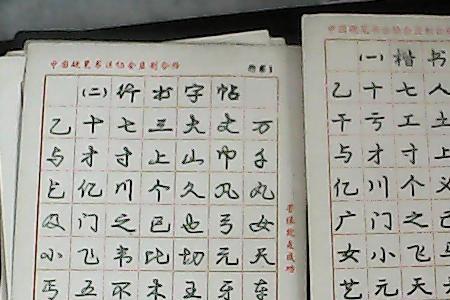 中国硬笔书法协会监制合格
(二)行书字帖
乙十七三大丈万
与才寸上山巾千
亿川个久凡丸
及门之已也弓女
小飞韦比切元天
丐五不木王牙车
中国硬笔书法协会监制合
(一)楷书
乙十七人
干亏工土
与才寸上
亿川个义
广门之己
女小飞马
艺元天